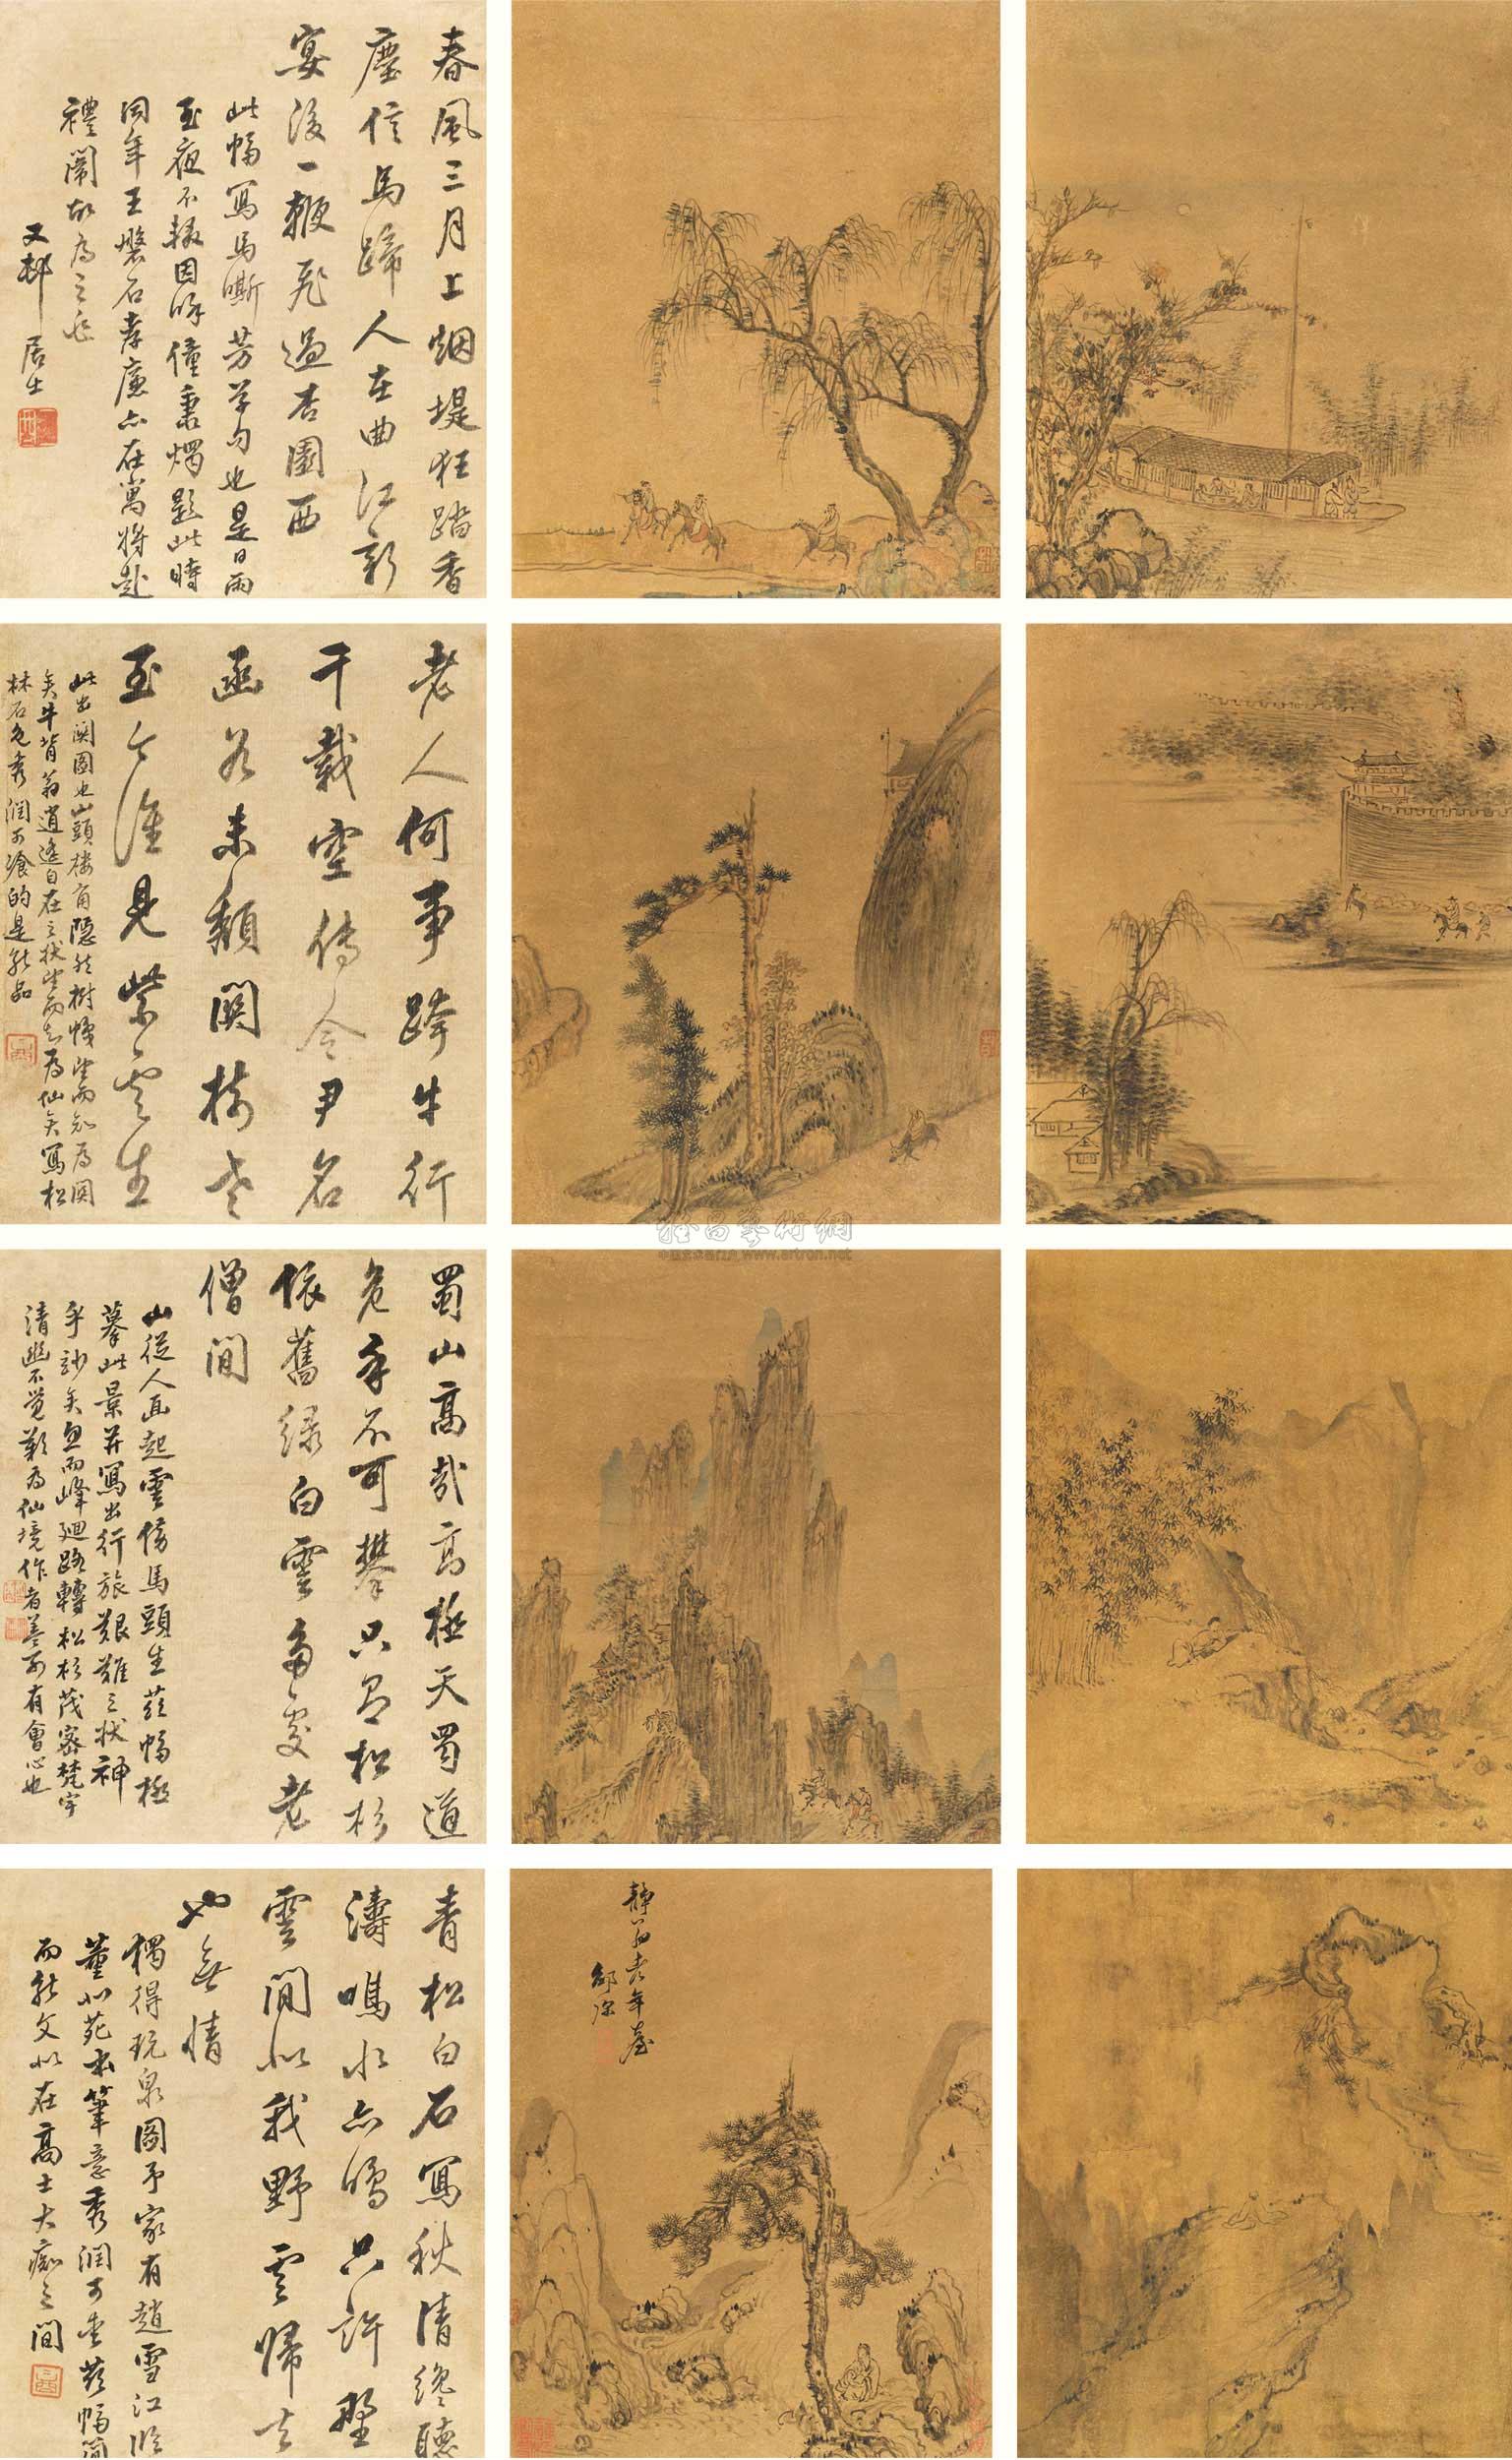 春風三月上烟堤狂踏香
塵信馬蹄人在曲江新
宴後一鞭飛過杏園西
此幅寫馬嘶芳草句也是日雨
至夜不輟因呼僮秉燭題此時
同年王磐石孝廉亦在寓將赴
禮闈故為之
又邨居士
老人何事跨牛行
千載空傳令尹名
函谷未頹關樹老
至今誰見紫雲生
此出關圖也山頭樓角隱然樹悵望而知為關
矣牛背翁逍遙自在之狀望而知為仙矣寫松
林石色秀潤可飡的是能品
蜀山高哉高極天蜀道
危乎不可攀只有松杉
依舊綠白雲多處老
僧閒
山從人面起雲傍馬頭生茲幅極
摹此景并寫出行旅艱難之狀神
乎妙矣至而峰廻路轉松杉茂密梵宇
清幽不覺歎為仙境作者蓋別有會心也
青松白石寫秋清纔聽
濤鳴水亦鳴只許野
雲閒似我野雲歸去
也無情
獨得玩泉圖予家有趙雪江臨
董北苑本筆意秀潤可愛茲幅簡
而能文似在高士大癡之間
靜翁老年臺
鄒深
雅昌藝術網
www.artron.net